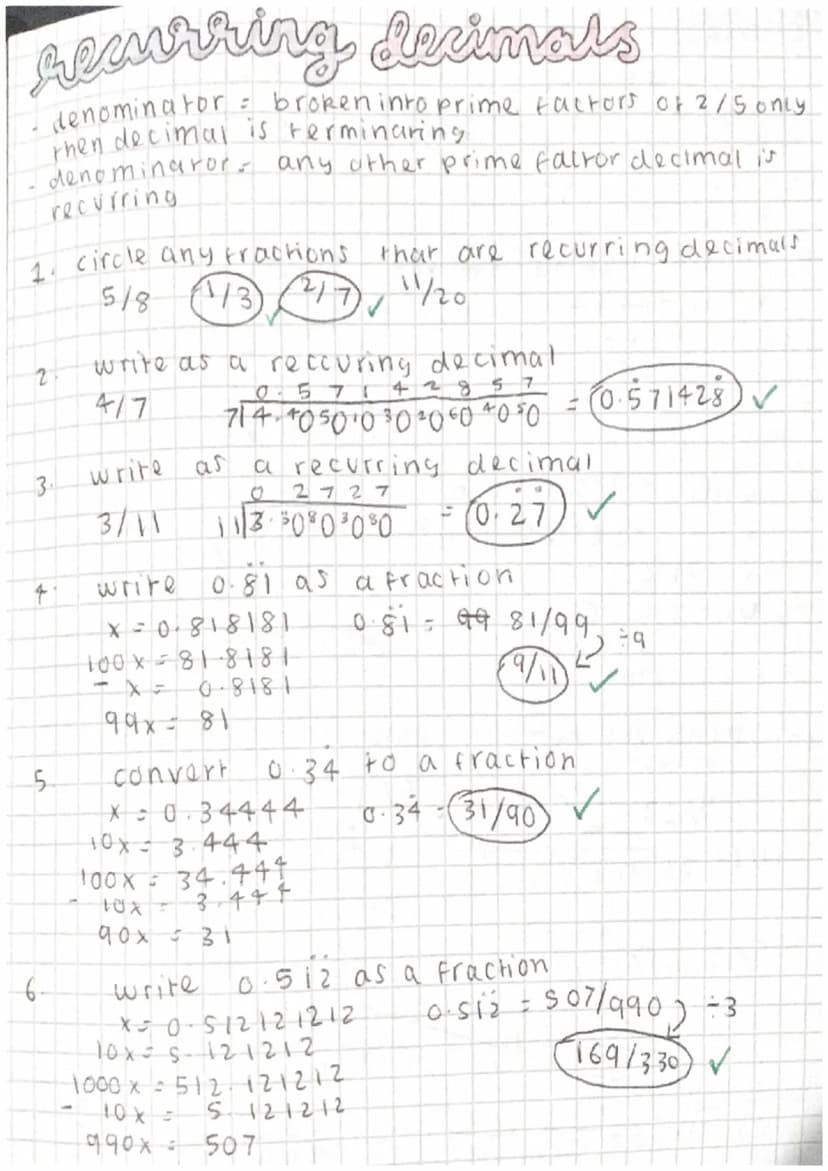 recurring decimals
- denominator = broken into prime factors of 2/5 only
then decimal is terminating
- denominator = any other prime factor decimal is
recurring
1. circle any fractions that are recurring decimals
5/8 1/3 ✓ 2/7 ✓ 11/20
2. write as a reccuring decimal
0. 5 7 1 4 2 8 5 7
4/7 7|4.⁴0⁵0¹0³0²0⁶0⁴0⁵0 = 0.5̇71428̇ ✓
3. write as a recurring decimal
0 2 7 2 7
3/11 11|3.³0⁸0³0⁸0 = 0.2̇7̇ ✓
4. write 0.8̇1̇ as a fraction
x = 0.818181 0.8̇1̇ = 81/99 ÷9
100x = 81.8181 9/11 ✓
- x = 0.8181
99x = 81
5 convert 0.34̇ to a fraction
x = 0.34444 0.34̇ = 31/90 ✓
10x = 3.444
100x = 34.444
- 10x = 3.444
90x = 31
6. write 0.51̇2̇ as a fraction
x = 0.512121212 0.51̇2̇ = 507/990 ÷3
10x = 5.121212 169/330 ✓
1000x = 512.121212
- 10x = 5.121212
990x = 507